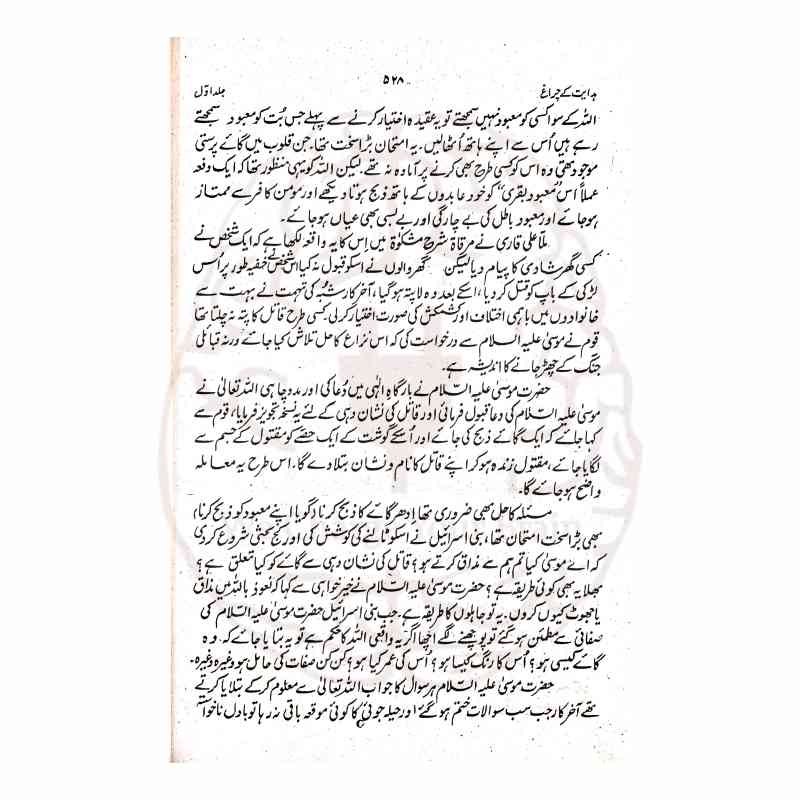 ۵۲۸
ہدایت کے چراغ
جلد اوّل
اللہ کے سوا کسی کو معبود نہیں سمجھتے تو یہ عقیدہ اختیار کرنے سے پہلے جس بُت کو معبود سمجھتے
رہے ہیں اُس سے اپنے ہاتھ اُٹھالیں۔ یہ امتحان بڑا سخت تھا۔ جن قلوب میں گائے پرستی
موجود تھی وہ اس کو کسی طرح بھی کرنے پر آمادہ نہ تھے۔ لیکن اللہ کو یہی منظور تھا کہ ایک دفعہ
عملاً اُس "معبود بقری" کو خود عابدوں کے ہاتھ ذبح ہوتا دیکھے اور مومن کا فر سے ممتاز
ہو جائے اور معبود باطل کی بے چارگی اور بے بسی بھی عیاں ہو جائے۔
ملّا علی قاری نے مرقاۃ شرح مشکوٰۃ میں اِس کا یہ واقعہ لکھا ہے کہ ایک شخص نے
کسی گھر شادی کا پیام دیا لیکن گھر والوں نے اسکو قبول نہ کیا اس شخص نے خفیہ طور پر اُس
لڑکی کے باپ کو قتل کر دیا، اسکے بعد وہ لاپتہ ہوگیا، آخر کار شبہ کی تہمت نے بہت سے
خانوادوں میں باہمی اختلاف اور کشمکش کی صورت اختیار کرلی کسی طرح قاتل کا پتہ نہ چلتا تھا
قوم نے موسیٰ علیہ السلام سے درخواست کی کہ اس نزاع کا حل تلاش کیا جائے ورنہ قبائلی
جنگ کے چھڑ جانے کا اندیشہ ہے۔
حضرت موسیٰ علیہ السّلام نے بارگاہِ الٰہی میں دُعا کی اور مدد چاہی اللہ تعالیٰ نے
موسیٰ علیہ السّلام کی دعا قبول فرمائی اور قاتل کی نشان دہی کے لئے یہ نسخہ تجویز فرمایا، قوم سے
کہا جائے کہ ایک گائے ذبح کی جائے اور اُسکے گوشت کے ایک حصّے کو مقتول کے جسم سے
لگایا جائے، مقتول زندہ ہو کر اپنے قاتل کا نام و نشان بتلا دے گا۔ اس طرح یہ معاملہ
واضح ہو جائے گا۔
مسئلہ کا حل بھی ضروری تھا اِدھر گائے کا ذبح کرنا (گویا اپنے معبود کو ذبح کرنا)
بھی بڑا سخت امتحان تھا، بنی اسرائیل نے اسکو ٹالنے کی کوشش کی اور کج بحثی شروع کردی
کہ اے موسیٰ کیا تم ہم سے مذاق کرتے ہو؟ قاتل کی نشان دہی سے گائے کو کیا تعلق ہے؟
بھلا یہ بھی کوئی طریقہ ہے؟ حضرت موسیٰ علیہ السّلام نے خیر خواہی سے کہا کہ نعوذ باللہ میں مذاق
یا جھوٹ کیوں کروں۔ یہ تو جاہلوں کا طریقہ ہے۔ جب بنی اسرائیل حضرت موسیٰ علیہ السّلام کی
صفائی سے مطمئن ہو گئے تو پوچھنے لگے اچھا اگر یہ واقعی اللہ کا حکم ہے تو یہ بتایا جائے کہ وہ
گائے کیسی ہو؟ اُس کا رنگ کیسا ہو؟ اُس کی عمر کیا ہو؟ کن کن صفات کی حامل ہو وغیرہ وغیرہ۔
حضرت موسیٰ علیہ السّلام ہر سوال کا جواب اللہ تعالیٰ سے معلوم کرکے بتلایا کرتے
تھے آخر کار جب سب سوالات ختم ہو گئے اور حیلہ جوئی کا کوئی موقعہ باقی نہ رہا تو بادل ناخواستہ